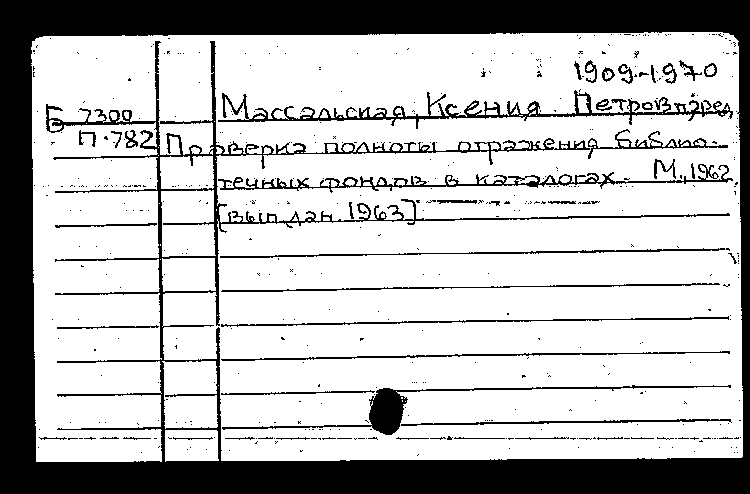 1909-1970
Б 7300 Массальская, Ксения Петров
П-782 Проверка полноты отражения библио-
течных фондов в каталогах. М., 1962.
[вып. дан. 1963]